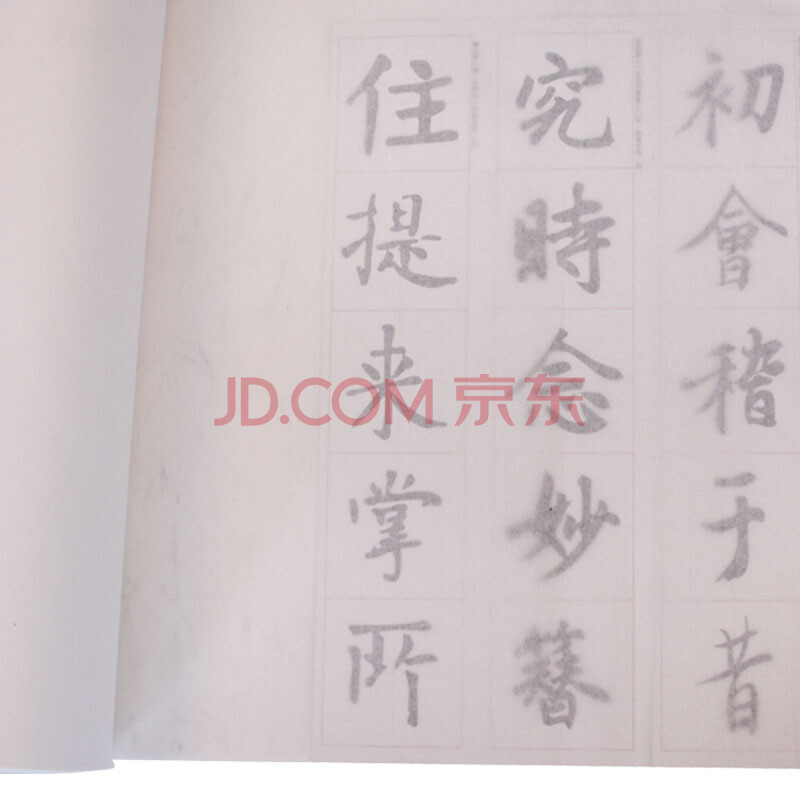 初會稽于昔
究時念妙簪
住提来掌所
JD.COM 京东